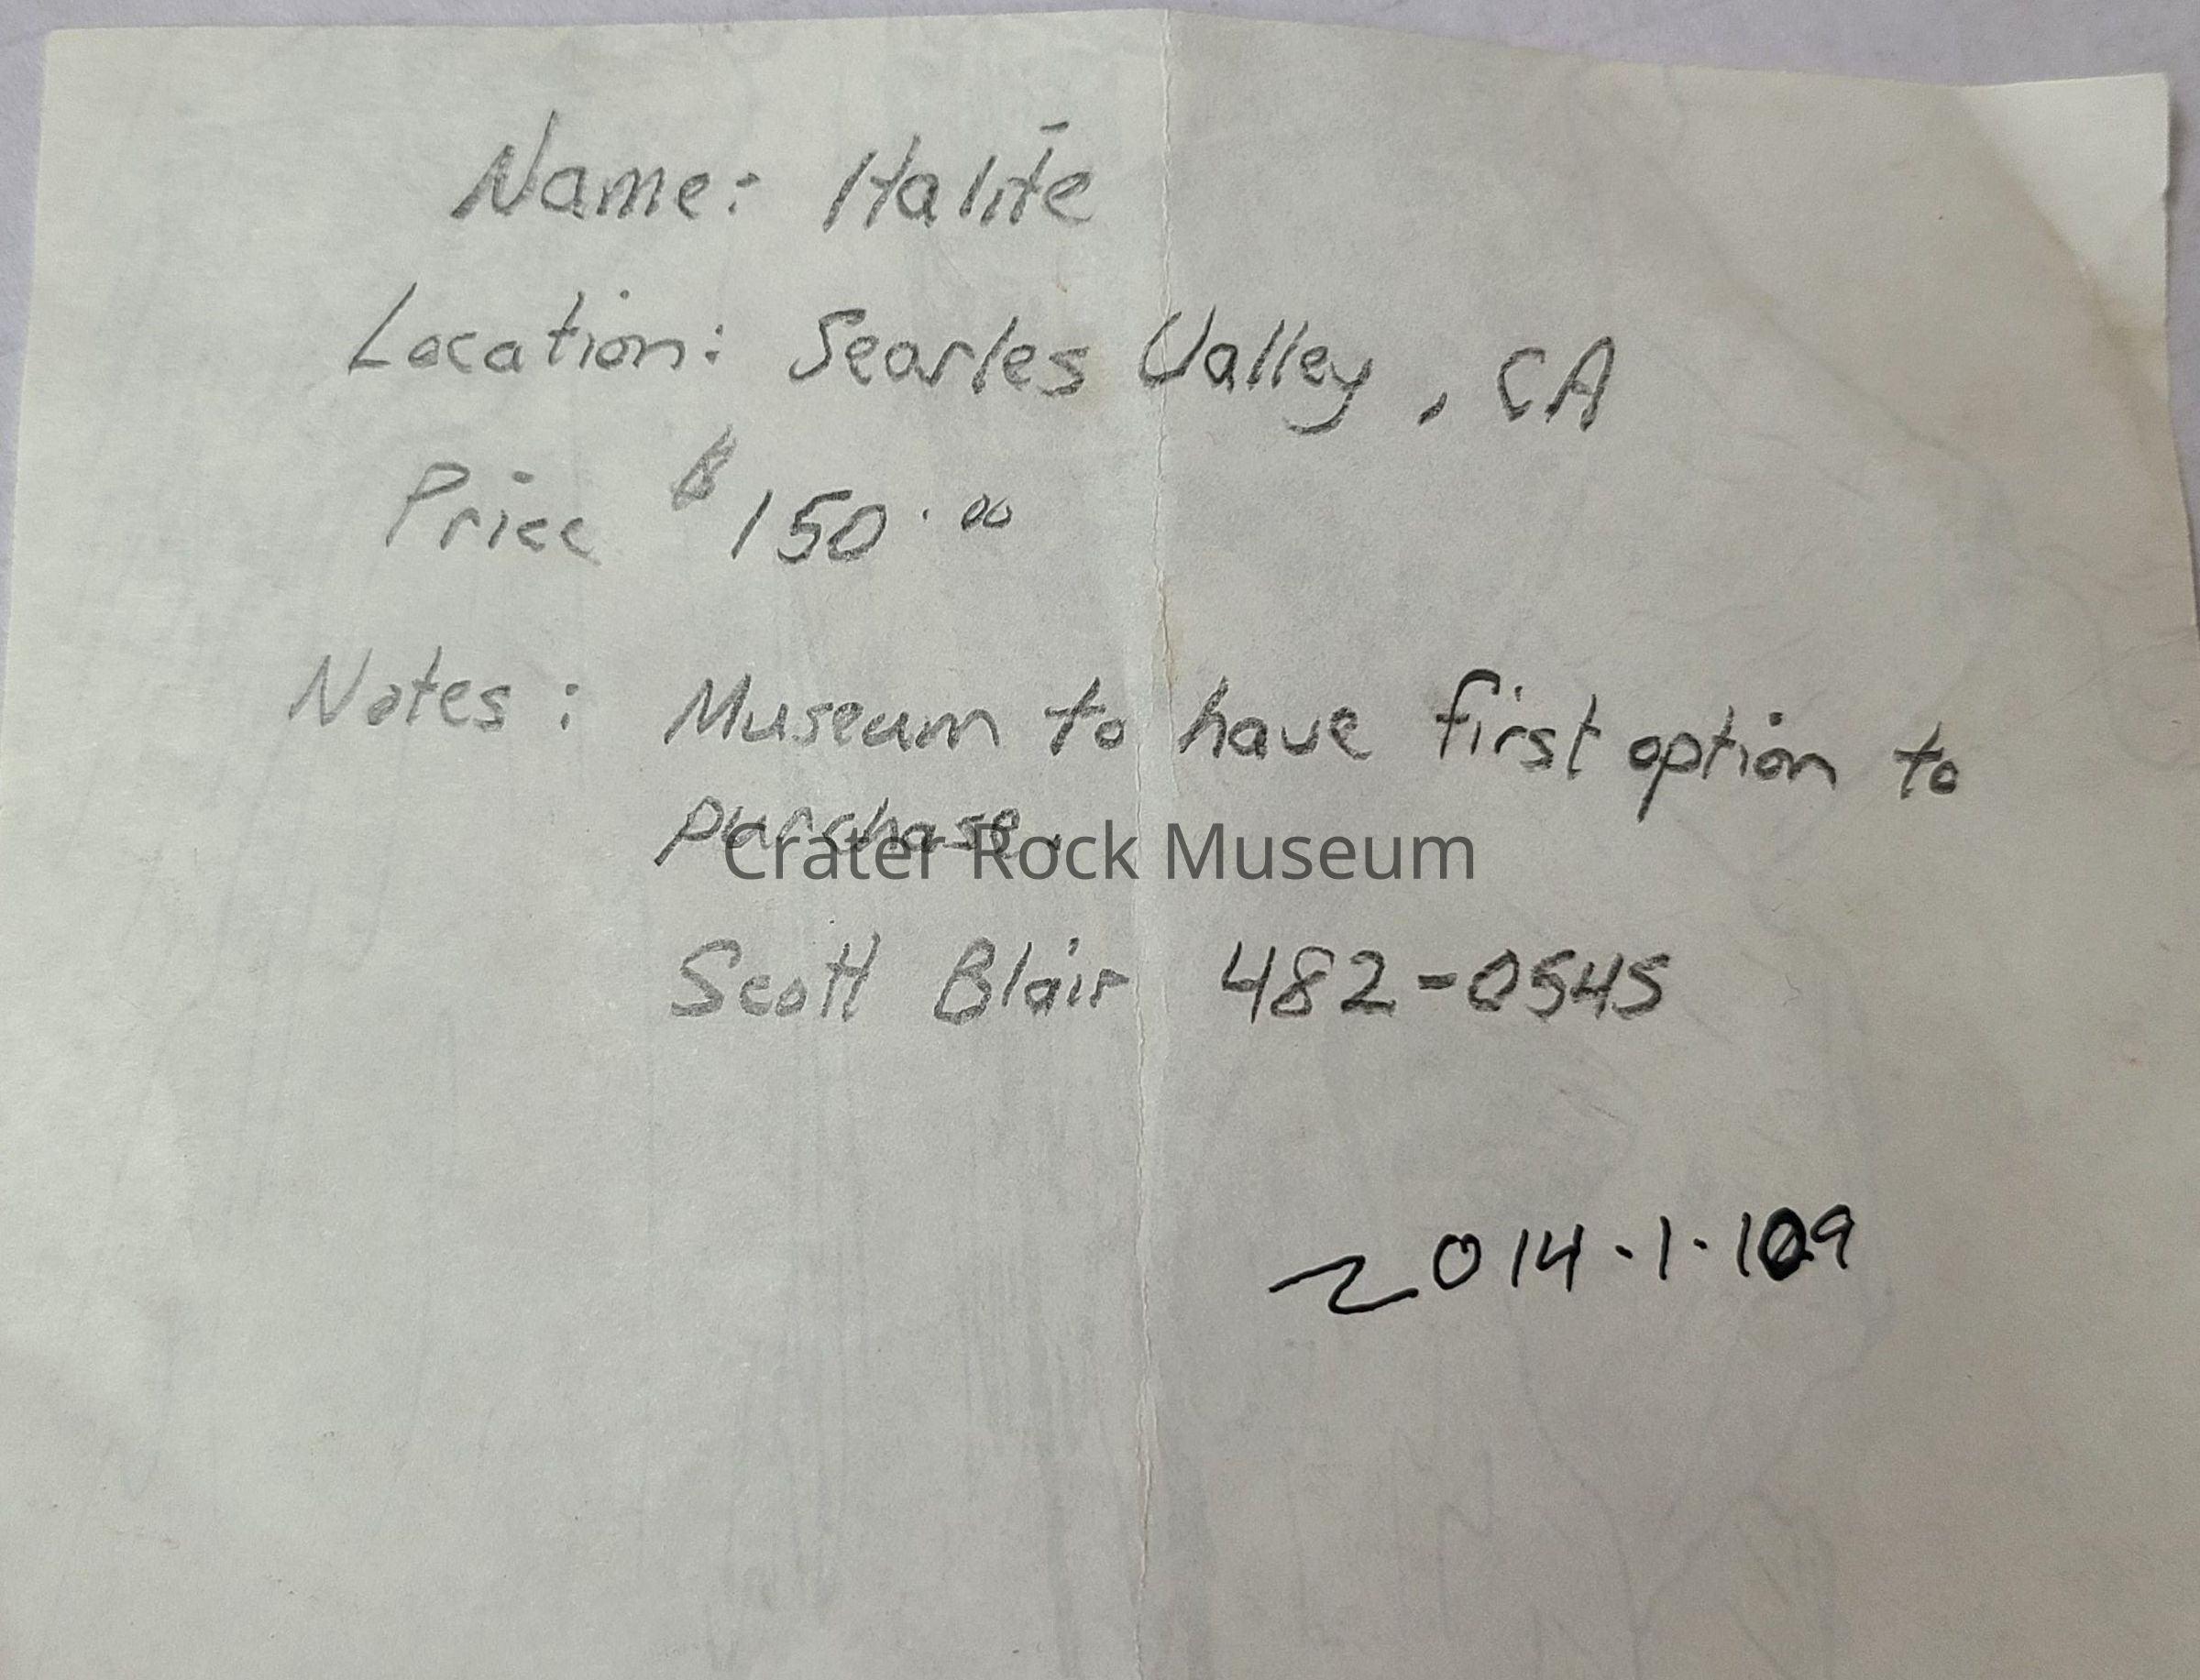 Name: Halite
Location: Searles Valley, CA
Price $150.00
Notes: Museum to have first option to
purchase.
Crater Rock Museum
Scott Blair 482-0545
2014.1.109